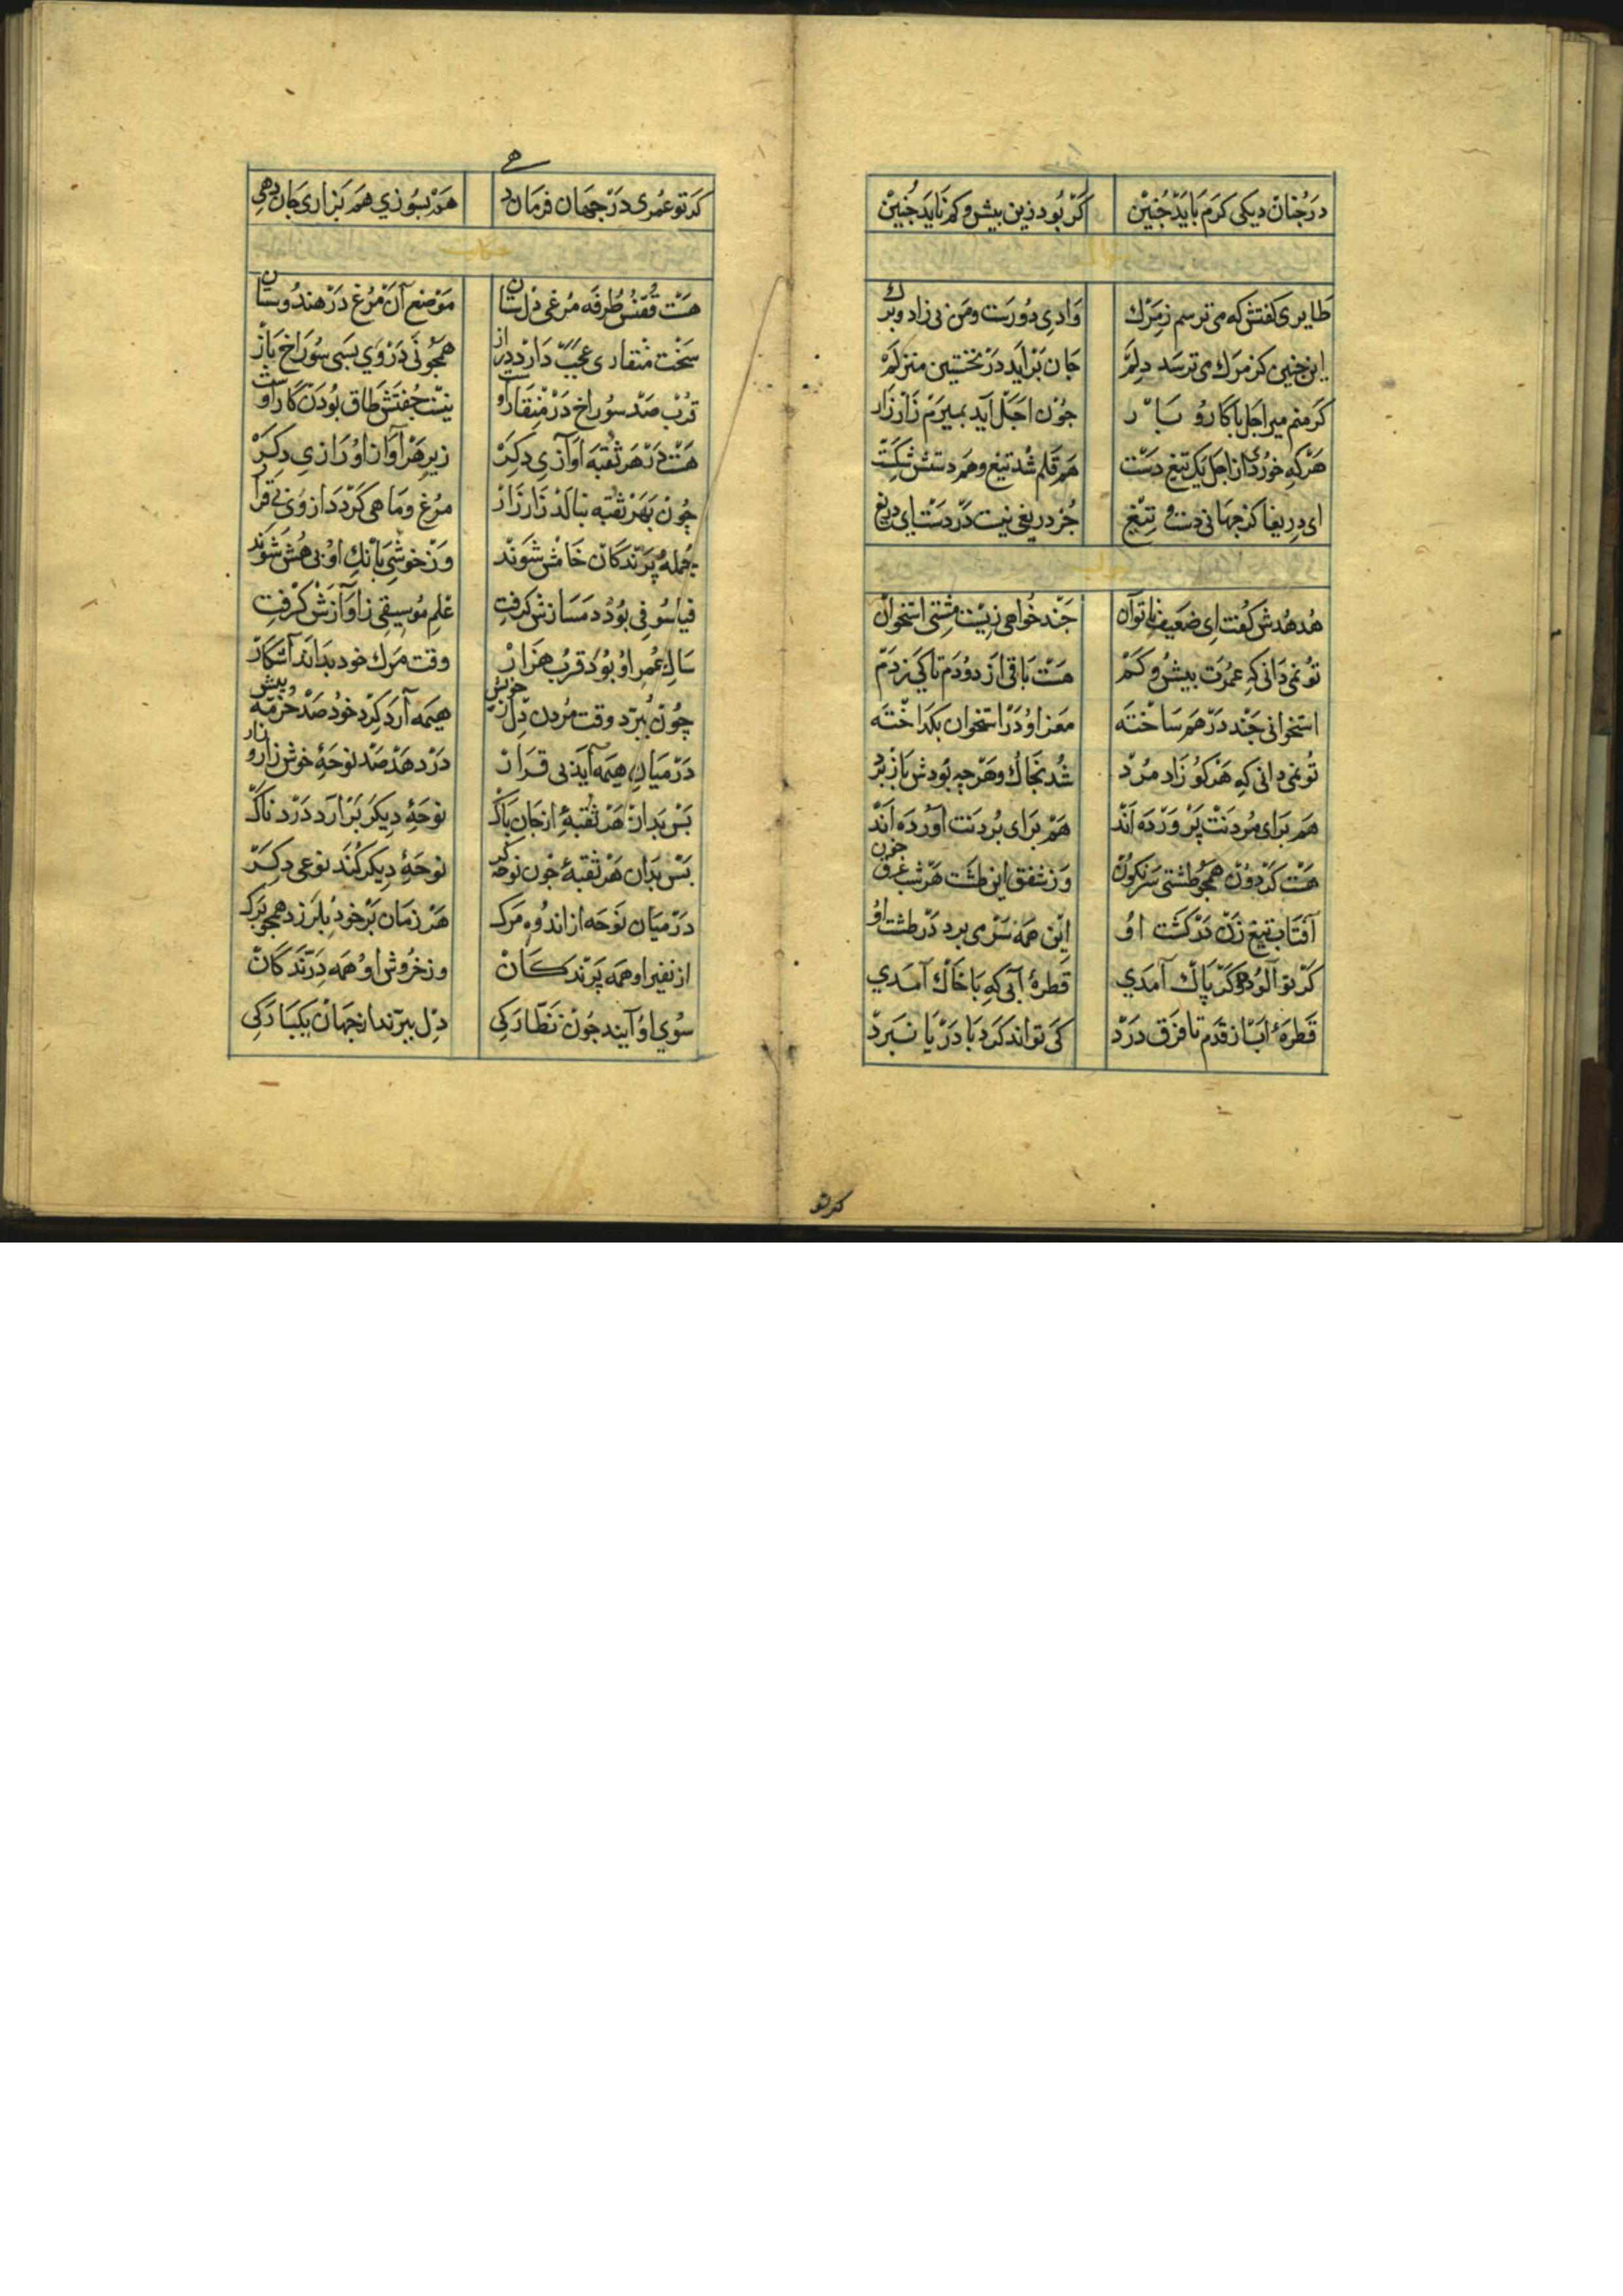 درچنان دیکی کرم باید چنین کر بود زین بیش و کم ناید چنین
طایری کفتش که می ترسم ز مرك وادی دورست و من بی زاد و برك
این چنین کز مرك می ترسد دلم جان براید در نخستین منزلم
کر منم میر اجل با کار و بار جون اجل آید بمیرم زار زار
هرکه خورد از اجل یک تیغ دست هم قلم شد تیغ و هم دستش شکست
ای دریغا کز جهانی دست و تیغ جز دریغی نیست در دست ای دریغ
هدهدش کفت ای ضعیف ناتوان جند خواهی زیست مشتی استخوان
تو نمی دانی که عمرت بیش و کم هست باقی از دو دم تا کی ز دم
استخوانی جند درهم ساخته مغز او در استخوان بکداخته
تو نمی دانی که هرکو زاد مرد شد بخاك و هرجه بودش باز برد
هم برای مردنت پرورده اند هم برای بردنت آورده اند
هست کردون همجو طشتی سرنکون وز شفق این طشت هر شب غرق خون
آفتاب تیغ زن در کشت او این همه سر می برد در طشت او
کر تو آلوده و کر پاك آمدی قطرۀ آبی که با خاك آمدی
قطرۀ آب از قدم تا فرق درد کی تواند کرد با دریا نبرد
کرتو
کر تو عمری در جهان فرمان دهی هم بسوزی هم بزاری جان دهی
حکایت
هست ققنس طرفه مرغی دلستان موضع آن مرغ در هندوستان
سخت منقاری عجب دارد دراز همجو نی در وی بسی سوراخ باز
قرب صد سوراخ در منقار اوست نیست جفتش طاق بودن کار اوست
هست در هر ثقبه آوازی دکر زیر هر آواز او رازی دکر
چون بهر ثقبه بنالد زار زار مرغ و ماهی کردد از وی بی قرار
جمله پرندکان خامش شوند وز خوشی بانك او بی هش شوند
فیلسوفی بود دمسازش کرفت علم موسیقی ز آوازش کرفت
سال عمر او بود قرب هزار وقت مرك خود بداند آشکار
چون ببرد وقت مردن دل ز خویش هیمه آرد کرد خود صد خرمه بیش
در میان هیمه آید بی قرار در دهد صد نوحۀ خوش زار زار
بس بدان هر ثقبۀ از جان پاك نوحۀ دیکر برآرد دردناك
بس بدان هر ثقبۀ جون نوحه کر نوحۀ دیکر کند نوعی دکر
در میان نوحه از اندوه مرك هر زمان بر خود بلرزد همجو برك
از نفیر او همه پرندکان وز خروش او همه درندکان
سوی او آیند جون نظارکی دل ببرند از جهان یکبارکی